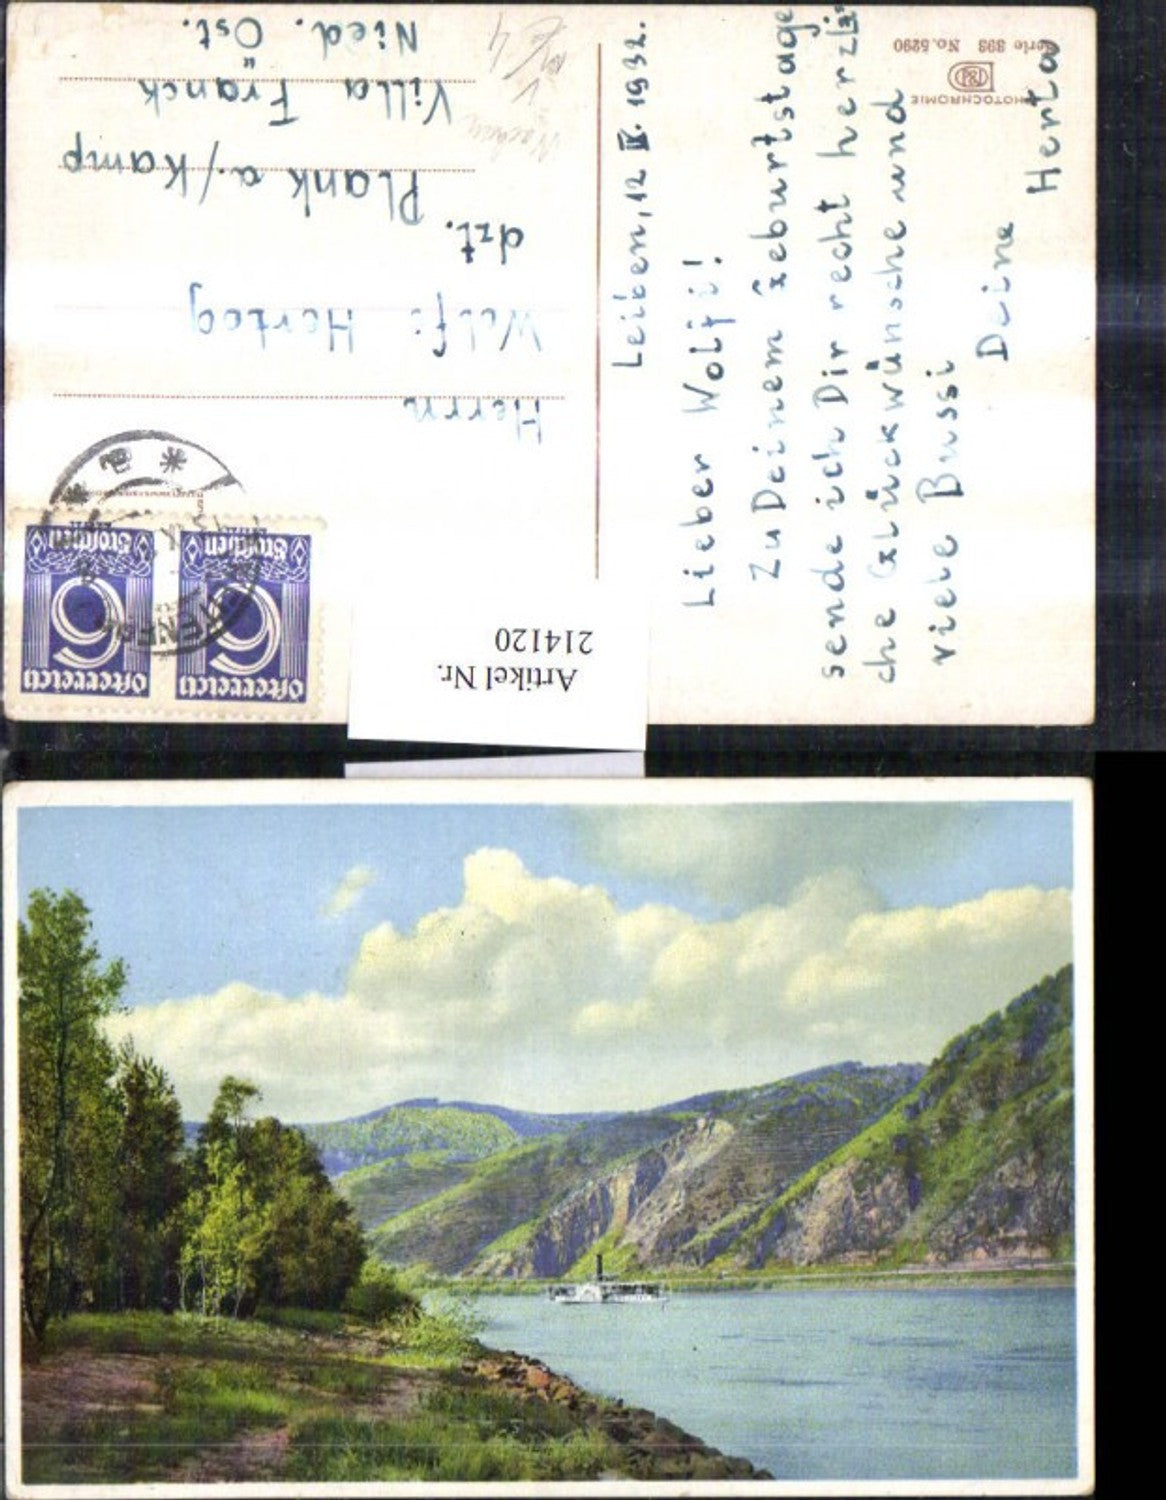 Leiben, 12 IX. 1932.
Lieber Wolfi!
Zu Deinem Geburtstage
sende ich Dir recht herzli=
che Glückwünsche und
viele Bussi
Deine
Herta
PHOTOCHROMIE
Serie 393 No. 5290
Herrn
Wolfi Hertog
dzt.
Plank a./Kamp
Villa Franck
Nied. Öst.
Österreich
6
Groschen
Österreich
6
Groschen
Artikel Nr.
214120